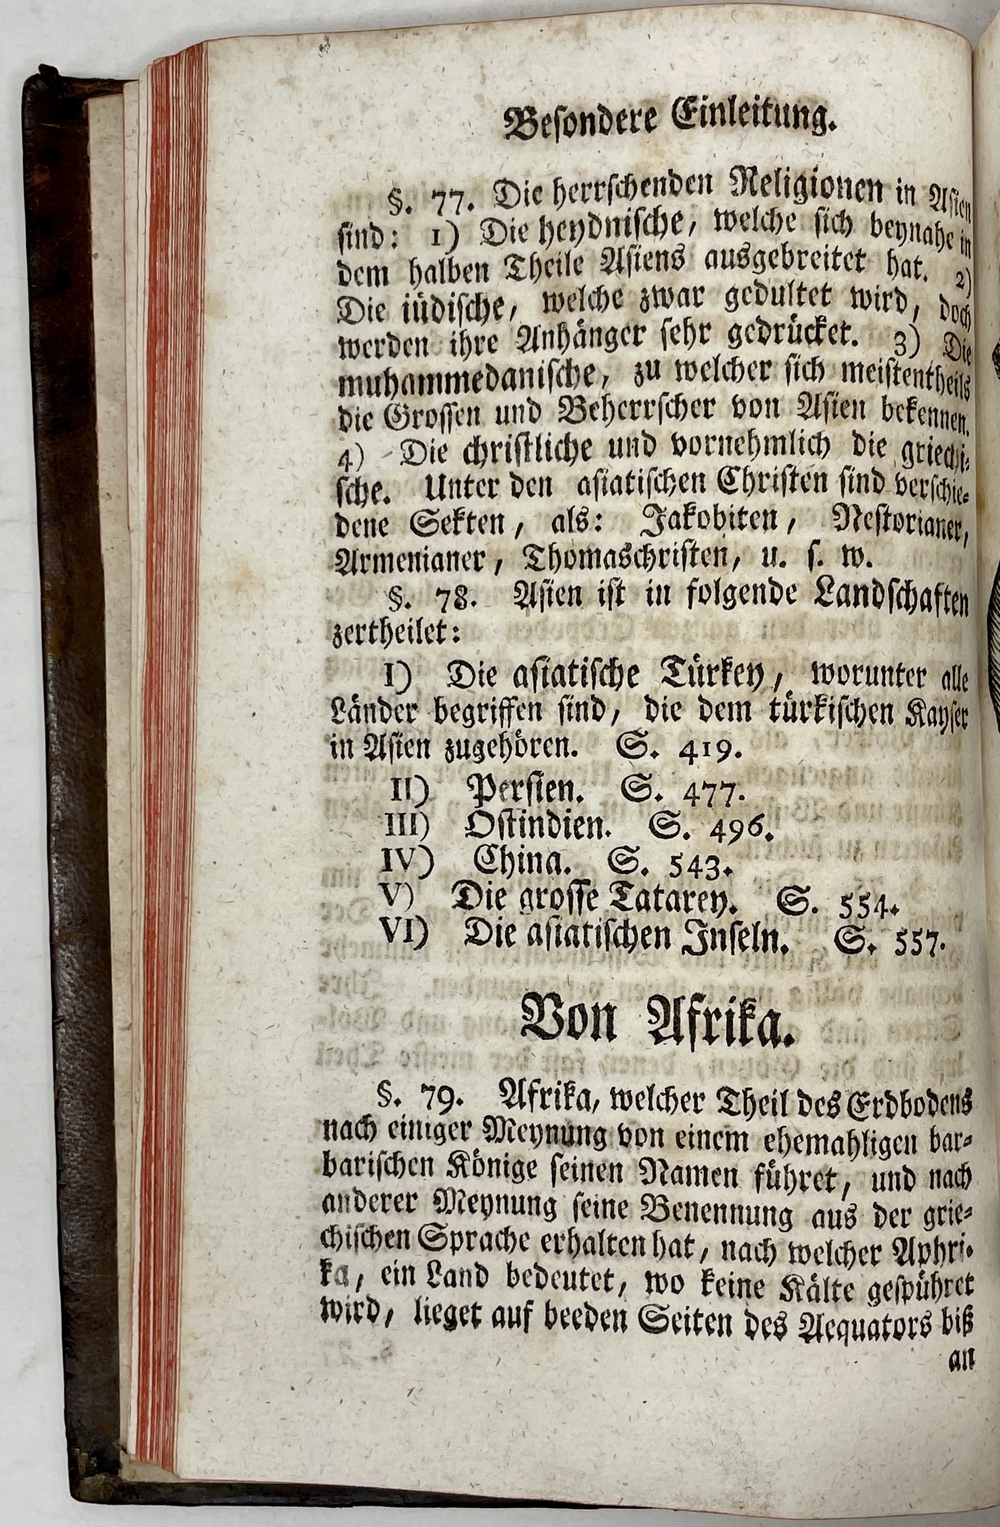 Besondere Einleitung.
§. 77. Die herrschenden Religionen in Asien
sind: 1) Die heydnische, welche sich beynahe in
dem halben Theile Asiens ausgebreitet hat. 2)
Die iüdische, welche zwar gedultet wird, doch
werden ihre Anhänger sehr gedrücket. 3) Die
muhammedanische, zu welcher sich meistentheils
die Grossen und Beherrscher von Asien bekennen.
4) Die christliche und vornehmlich die griechi-
sche. Unter den asiatischen Christen sind verschie-
dene Sekten, als: Jakobiten, Nestorianer,
Armenianer, Thomaschristen, u. s. w.
§. 78. Asien ist in folgende Landschaften
zertheilet:
I) Die asiatische Türkey, worunter alle
Länder begriffen sind, die dem türkischen Kayser
in Asien zugehören. S. 419.
II) Persien. S. 477.
III) Ostindien. S. 496.
IV) China. S. 543.
V) Die grosse Tatarey. S. 554.
VI) Die asiatischen Inseln. S. 557.
Von Afrika.
§. 79. Afrika, welcher Theil des Erdbodens
nach einiger Meynung von einem ehemahligen bar-
barischen Könige seinen Namen führet, und nach
anderer Meynung seine Benennung aus der grie-
chischen Sprache erhalten hat, nach welcher Aphri-
ka, ein Land bedeutet, wo keine Kälte gespühret
wird, lieget auf beeden Seiten des Aequators biß
an